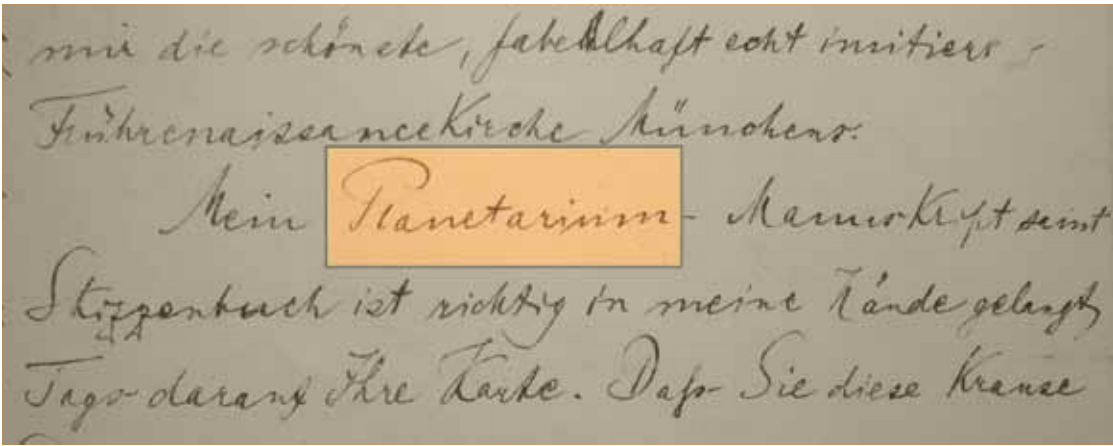 mir die schönste, fabelhaft echt imitiers-
FrührenaissanceKirche Münchens.
Mein Planetarium-Manuskript samt
Skizzenbuch ist richtig in meine Hände gelangt,
Tags darauf Ihre Karte. Daß Sie diese Krause